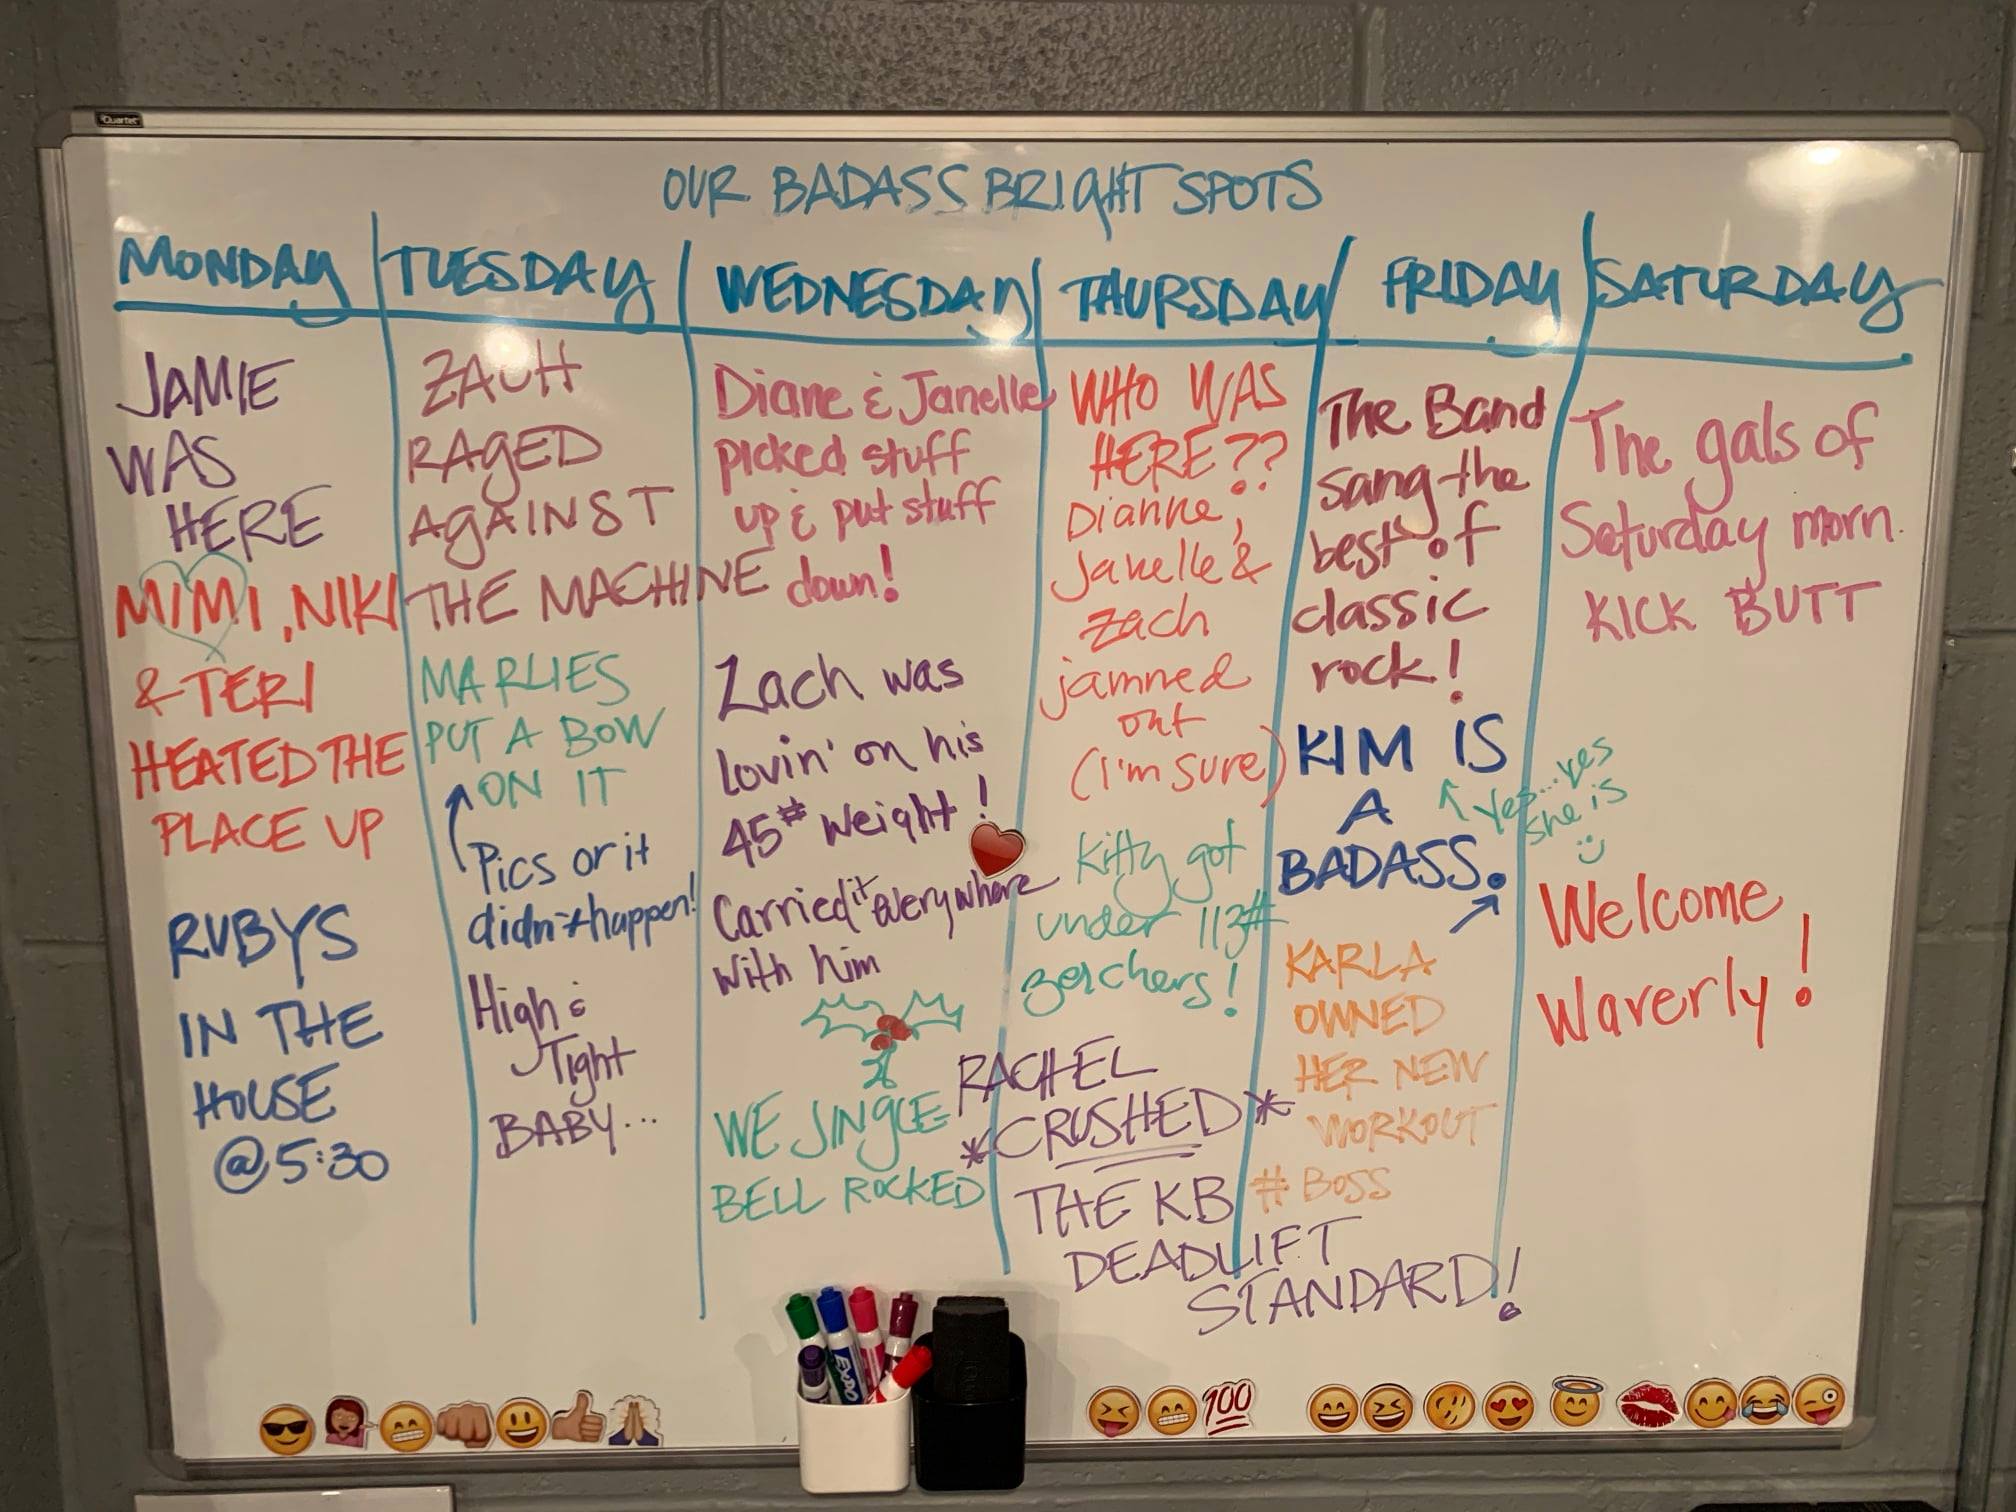 Quartet
OUR BADASS BRIGHT SPOTS
MONDAY
JAMIE
WAS
HERE
MIMI, NIKI
& TERI
HEATED THE
PLACE UP
RUBYS
IN THE
HOUSE
@5:30
TUESDAY
ZACH
RAGED
AGAINST
THE MACHINE
MARLIES
PUT A BOW
ON IT
Pics or it
didn't happen!
High &
Tight
BABY...
WEDNESDAY
Diane & Janelle
picked stuff
up & put stuff
down!
Zach was
lovin' on his
45# weight!
Carried it everywhere
with him
WE JINGLE
BELL ROCKED
THURSDAY
WHO WAS
HERE??
Dianne,
Janelle &
Zach
jammed
out
(I'm sure)
Kitty got
under 113#
zerchers!
RACHEL
*CRUSHED*
THE KB
DEADLIFT
STANDARD!
FRIDAY
The Band
sang the
best of
classic
rock!
KIM IS
A
BADASS.
yes...yes
she is
KARLA
OWNED
HER NEW
WORKOUT
# BOSS
SATURDAY
The gals of
Saturday morn.
KICK BUTT
Welcome
Waverly!
EXPO
100